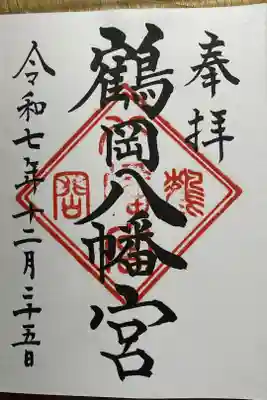 奉拝
鶴岡八幡宮
令和七年十二月二十五日